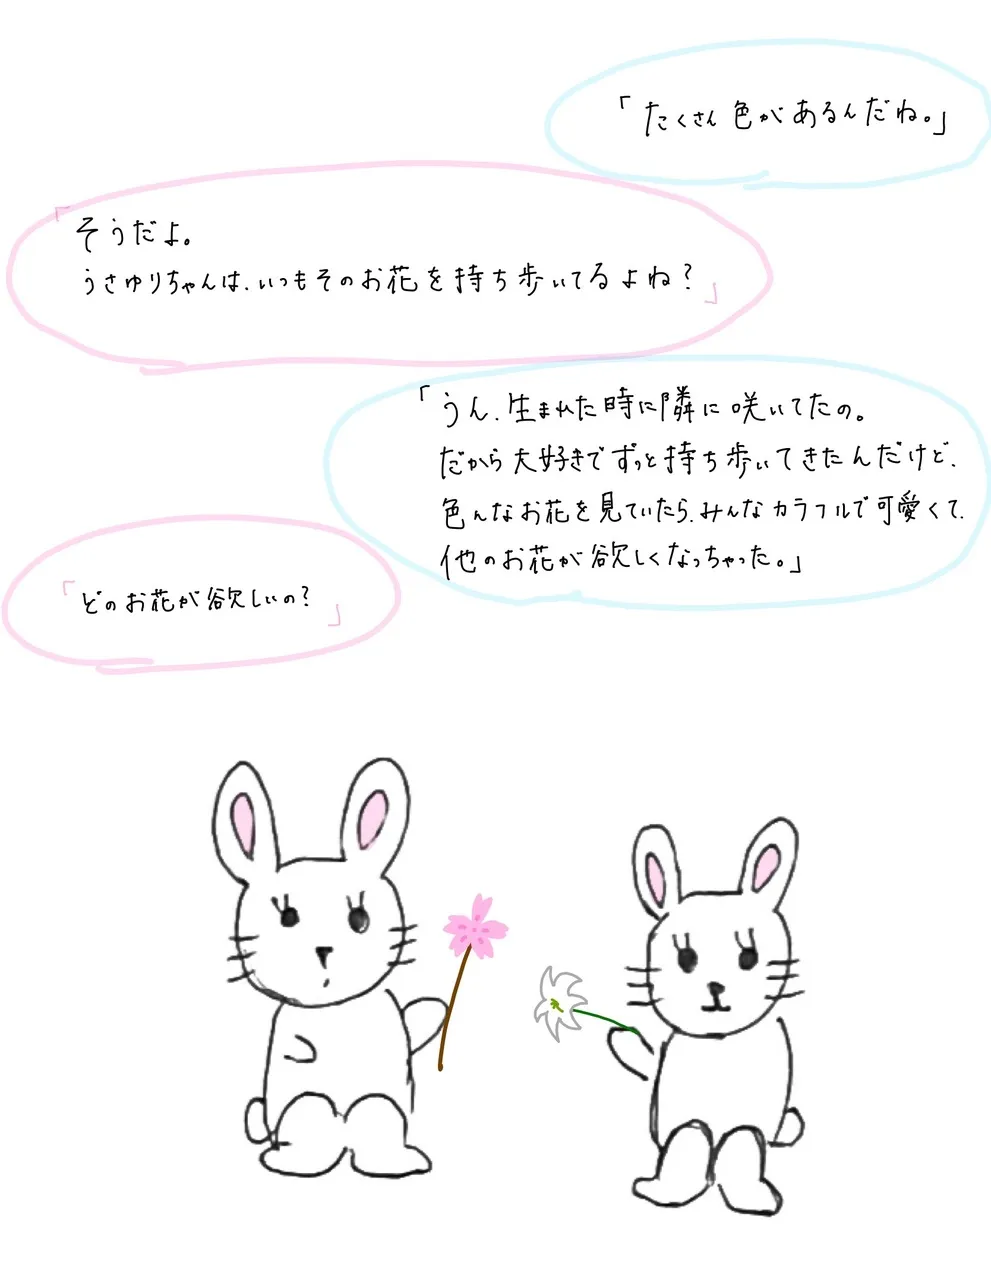 「たくさん色があるんだね。」
「そうだよ。
うさゆりちゃんは、いつもそのお花を持ち歩いてるよね？」
「うん、生まれた時に隣に咲いてたの。
だから大好きでずっと持ち歩いてきたんだけど、
色んなお花を見ていたら、みんなカラフルで可愛くて、
他のお花が欲しくなっちゃった。」
「どのお花が欲しいの？」